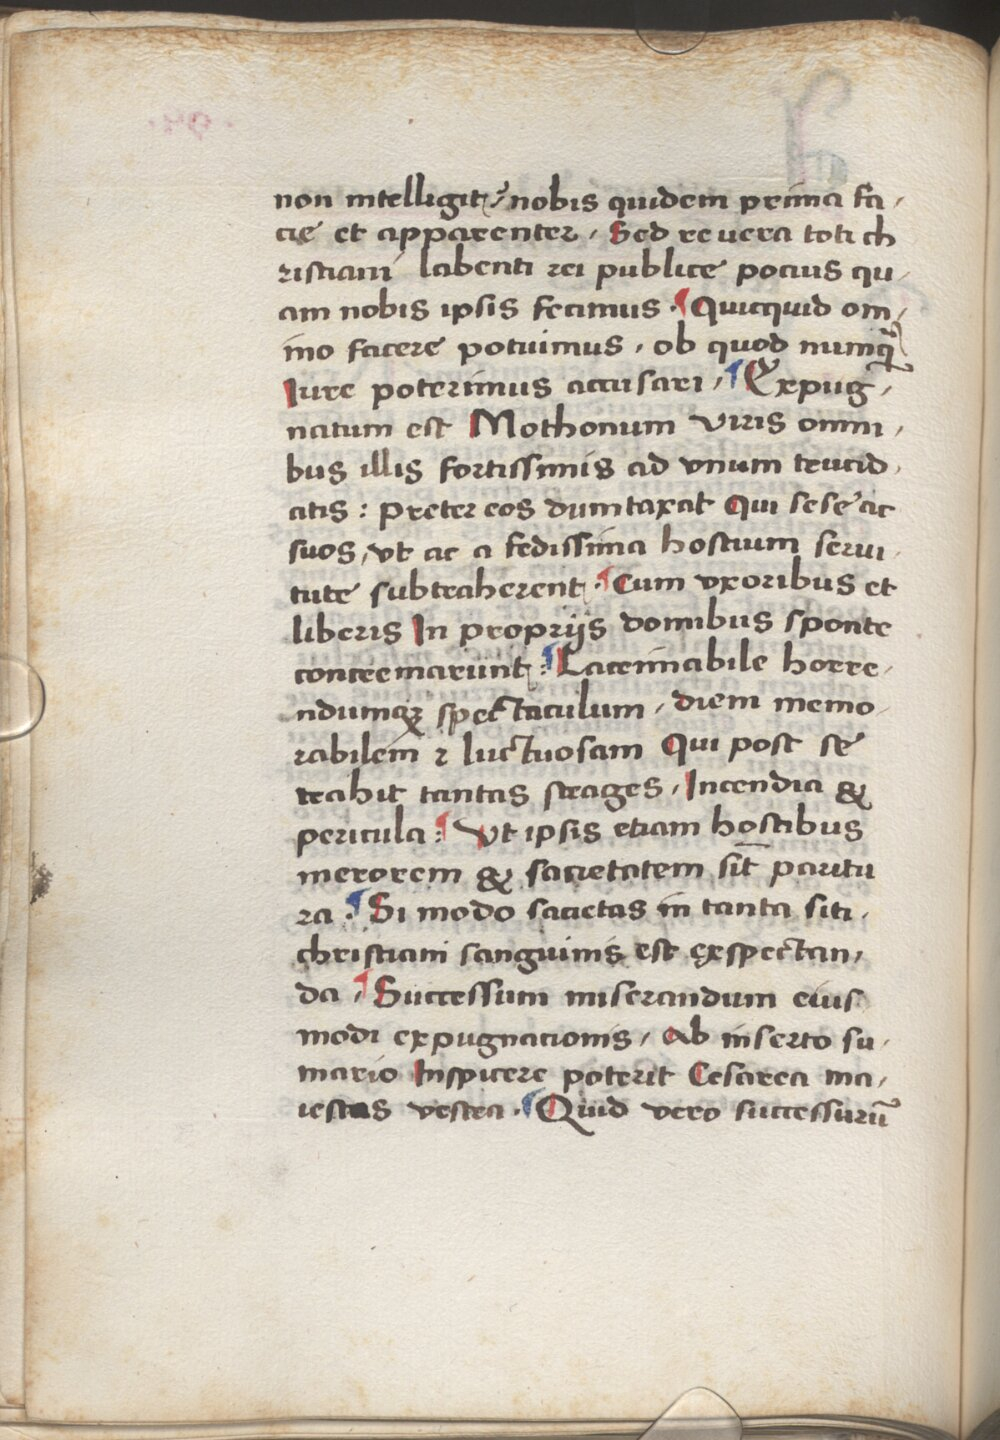 non intelligit: nobis quidem prima fa,
cie et apparenter, Sed re uera toti ch
ristiani labenti rei publice pocius qu,
am nobis ipsis fecimus. ¶ Quicquid om,
ino facere potuimus, ob quod numq̄
Iure poterimus accusari, ¶ Expug,
natum est Mothonum Viris omni,
bus illis fortissimis ad vnum trucid,
atis: preter eos dumtaxat Qui sese ac
suos, vt ac a fedissima hostium serui,
tute subtraherent. ¶ Cum vxoribus et
liberis In proprijs domibus sponte
concremarunt: ¶ Lacrimabile horre,
ndumqꝫ spectaculum, diem memo,
rabilem ⁊ luctuosam Qui post se
trahit tantas strages, Incendia &
pericula: ¶ Vt ipsis etiam hostibus
merorem & sacietatem sit paritu
ra. ¶ Si modo sacietas in tanta siti,
christiani sanguinis est exspectan,
da, ¶ Successum miserandum eius
modi expugnacionis, Ab inserto su,
mario Inspicere poterit Cesarea ma,
iestas vestra. ¶ Quid vero successurū